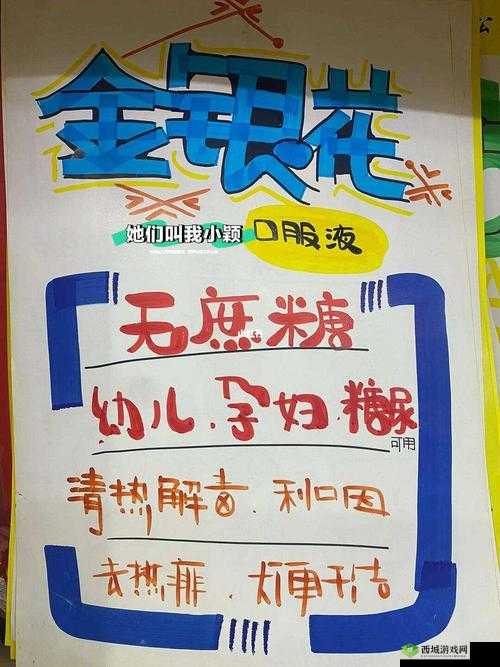 公
金银花
她们叫我小颖 口服液
无庶糖
幼儿.孕妇.糖尿
可用
清热解毒.利咽
去热痱.大便干洁
西城游戏网